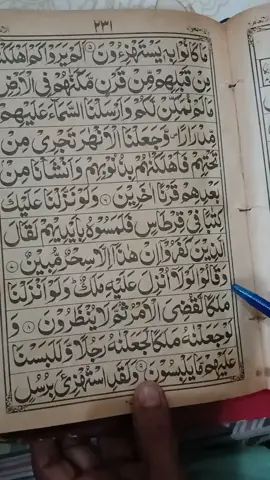 ٢٣١
مَا كَانُوْا بِهٖ يَسْتَهْزِءُوْنَ ۝٥ اَلَمْ يَرَوْا كَمْ اَهْلَكْنَا
مِنْ قَبْلِهِمْ مِّنْ قَرْنٍ مَّكَّنّٰهُمْ فِى الْاَرْضِ
مَا لَمْ نُمَكِّنْ لَّكُمْ وَاَرْسَلْنَا السَّمَآءَ عَلَيْهِمْ
مِّدْرَارًا وَّجَعَلْنَا الْاَنْهٰرَ تَجْرِىْ مِنْ
تَحْتِهِمْ فَاَهْلَكْنٰهُمْ بِذُنُوْبِهِمْ وَاَنْشَاْنَا مِنْۢ
بَعْدِهِمْ قَرْنًا اٰخَرِيْنَ ۝٦ وَلَوْ نَزَّلْنَا عَلَيْكَ
كِتٰبًا فِىْ قِرْطَاسٍ فَلَمَسُوْهُ بِاَيْدِيْهِمْ لَقَالَ
الَّذِيْنَ كَفَرُوْۤا اِنْ هٰذَاۤ اِلَّا سِحْرٌ مُّبِيْنٌ ۝٧
وَقَالُوْا لَوْلَاۤ اُنْزِلَ عَلَيْهِ مَلَكٌ ؕ وَلَوْ اَنْزَلْنَا
مَلَكًا لَّقُضِىَ الْاَمْرُ ثُمَّ لَا يُنْظَرُوْنَ ۝٨ وَ
لَوْ جَعَلْنٰهُ مَلَكًا لَّجَعَلْنٰهُ رَجُلًا وَّلَلَبَسْنَا
عَلَيْهِمْ مَّا يَلْبِسُوْنَ ۝٩ وَلَقَدِ اسْتُهْزِئَ بِرُسُلٍ